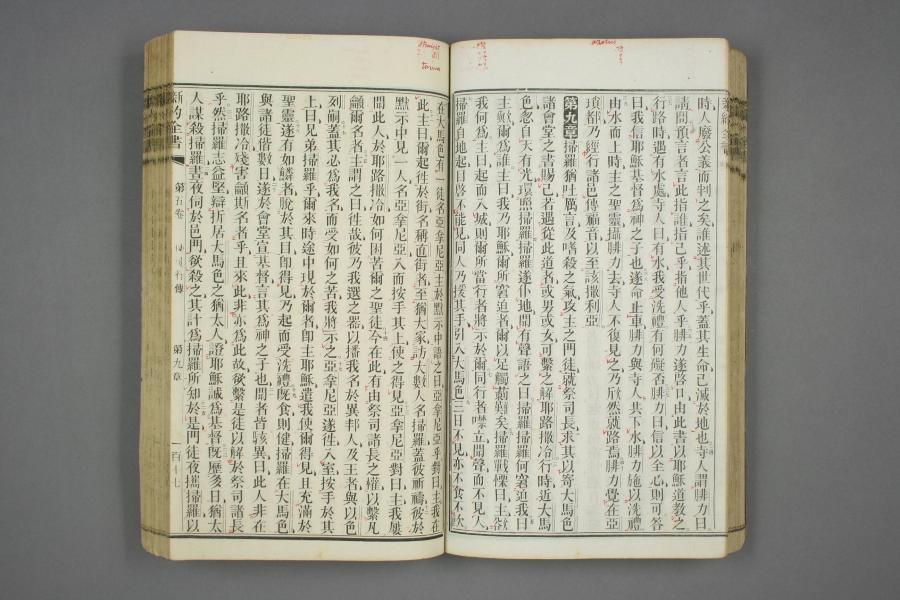 時人廢公義而判之矣誰述其世代乎蓋其生命已滅於地也寺人謂腓力曰
請問預言者言此指誰指己乎指他人乎腓力遂啟口由此書以耶穌道教之
行路時遇有水處寺人曰有水我受洗禮有何礙否腓力曰信以全心則可答
曰我信耶穌基督為神之子也遂命止車腓力與寺人共下水腓力施以洗禮
由水而上時主之聖靈攝腓力去寺人不復見之乃欣然就路焉腓力覺在亞
瑣都乃經行諸邑傳福音以至該撒利亞
第九章 掃羅猶吐厲言及嗜殺之氣攻主之門徒就祭司長求其以寄大馬色
諸會堂之書賜己若遇從此道者或男或女可繫之解耶路撒冷行時近大馬
色忽自天有光環照掃羅掃羅遂仆地聞有聲語之曰掃羅掃羅何窘迫我曰
主歟爾為誰主曰我乃耶穌爾所窘迫者爾以足觸蒺難矣掃羅戰慄曰主歟
我何為主曰起而入城則爾所當行者將示於爾同行者噤立聞聲而不見人
掃羅自地起目啟不能見同人乃援其手引入大馬色三日不見亦不食不飲
在大馬色有一徒名亞拿尼亞主於默示中語之曰亞拿尼亞乎對曰主我在
此主曰爾起往於街名稱直街者至猶大家訪大數人名掃羅蓋彼祈禱彼於
默示中見一人名亞拿尼亞入而按手其上使之得見亞拿尼亞對曰主我屢
聞此人於耶路撒冷如何困苦爾之聖徒今在此有由祭司諸長之權以繫凡
籲爾名者主謂之曰往哉彼乃我選之器以播我名於異邦人及王者與以色
列嗣蓋其必為我名而受如何之苦我將示之亞拿尼亞遂往入室按手於其
上曰兄弟掃羅乎爾來時途中現於爾者即主耶穌遣我使爾得見且充滿於
聖靈遂有如鱗者脫於其目即得見乃起而受洗禮既食則健掃羅在大馬色
與諸徒偕數日遂於會堂宣基督言其為神之子也聞者皆駭異曰此人非在
耶路撒冷殘害籲斯名者乎且來此非亦為此故欲繫是徒以解於祭司諸長
乎然掃羅志益堅辯折居大馬色之猶太人證耶穌誠為基督既歷多日猶太
人謀殺掃羅晝夜伺於邑門欲殺之其計為掃羅所知於是門徒夜攜掃羅以
新約全書 第五卷 使徒行傳 第九章 一百十七